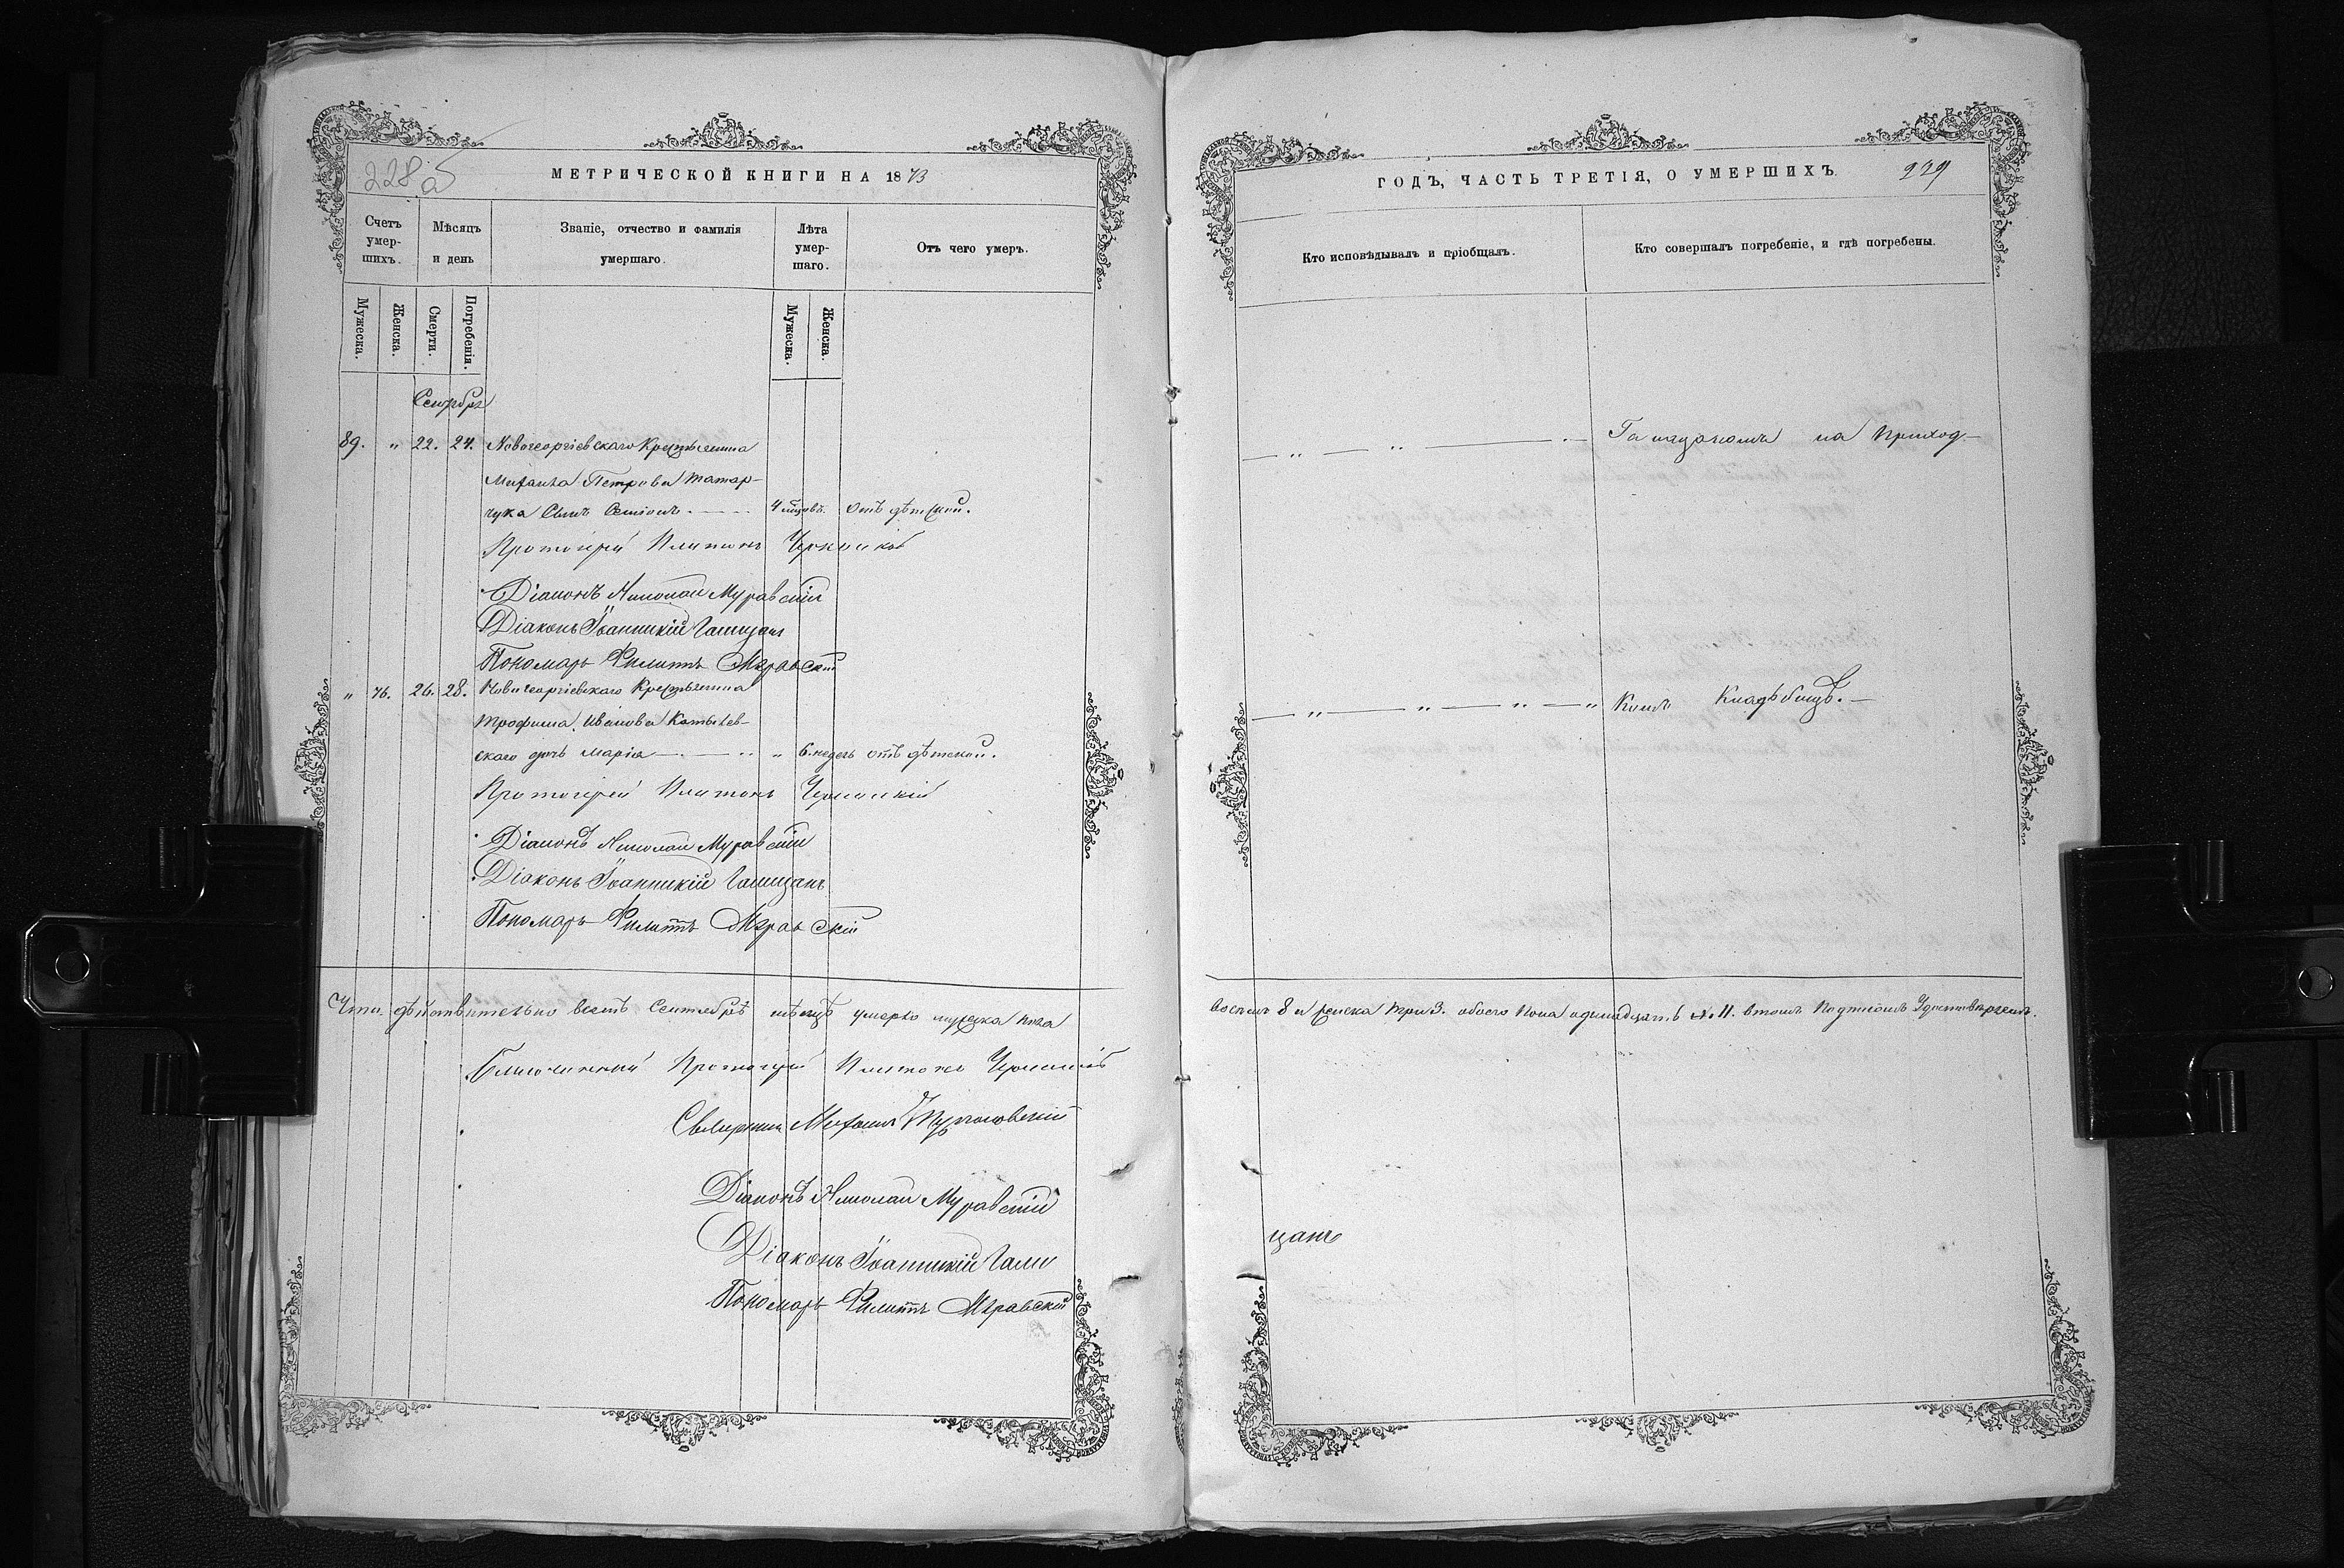 228 об
МЕТРИЧЕСКОЙ КНИГИ НА 1873
Счетъ умер-шихъ.
Мѣсяцъ и день
Званіе, отчество и фамилія умершаго.
Лѣта умер-шаго.
Отъ чего умеръ.
Мужеска.
Женска.
Смерти.
Погребенія.
Мужеска.
Женска.
Сентябрь
89. " 22. 24. Новогеоргіевскаго Крестьянина
Михаила Петрова Татар-
чука Сынъ Семіонъ. 4 мѣсяцовъ. Отъ дѣтской.
Протоіерей Платонъ
Діаконъ Николай Муравскій
Діаконъ Іоанникій Галицанъ
Пономарь Филиппъ Муравскій
" 76. 26. 28. Новогеоргіевскаго Крестьянина
Трофима Иванова
скаго дочь Марія " 6. недель отъ дѣтской.
Протоіерей Платонъ
Діаконъ Николай Муравскій
Діаконъ Іоанникій Галицанъ
Пономарь Филиппъ Муравскій
Что дѣйствительно въ Сентябрѣ мѣсяцѣ умерло мужеска пола
Благочинный Протоіерей Платонъ
Священникъ Михаилъ
Діаконъ Николай Муравскій
Діаконъ Іоанникій Гали
Пономарь Филиппъ Муравскій
ГОДЪ, ЧАСТЬ ТРЕТІЯ, О УМЕРШИХЪ.
229
Кто исповѣдывалъ и пріобщалъ.
Кто совершалъ погребеніе, и гдѣ погребены.
на Приход-
Кладбищѣ.
восемь 8 и женска три 3. обоего пола одинадцать № 11. в томъ Подписомъ Удостоверяемъ.
цанъ